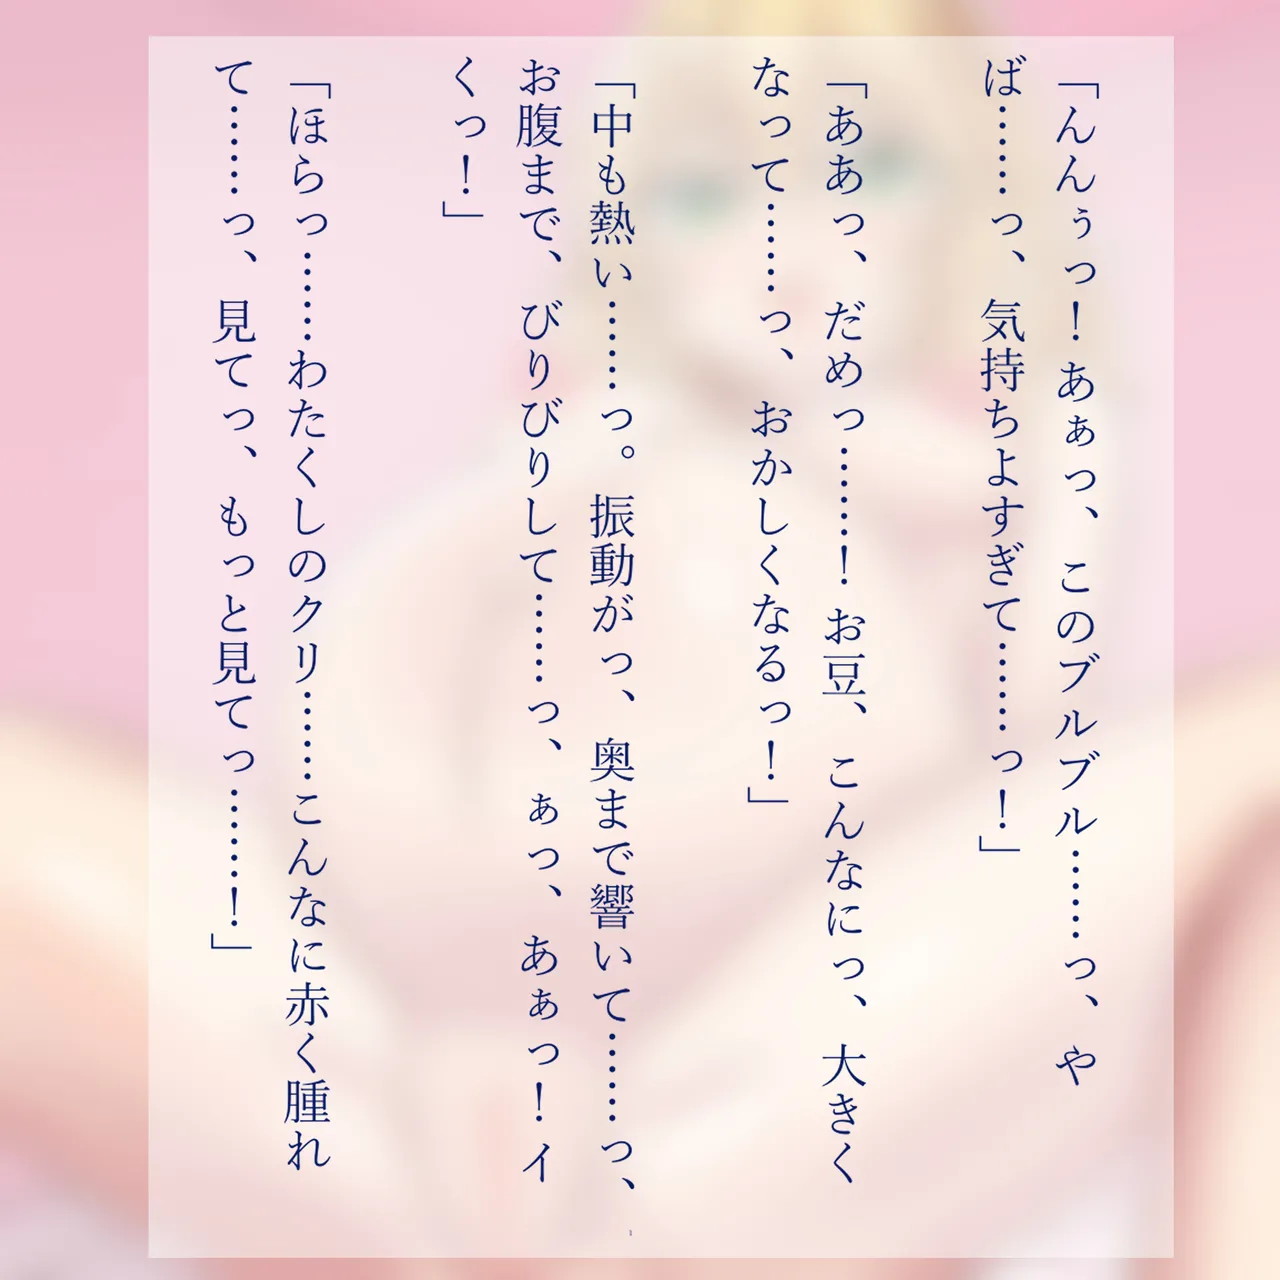 「んんぅっ！あぁっ、このブルブル……っ、や
ば……っ、気持ちよすぎて……っ！」
「ああっ、だめっ……！お豆、こんなにっ、大きく
なって……っ、おかしくなるっ！」
「中も熱い……っ。振動がっ、奥まで響いて……っ、
お腹まで、びりびりして……っ、ぁっ、あぁっ！イ
くっ！」
「ほらっ……わたくしのクリ……こんなに赤く腫れ
て……っ、見てっ、もっと見てっ……！」